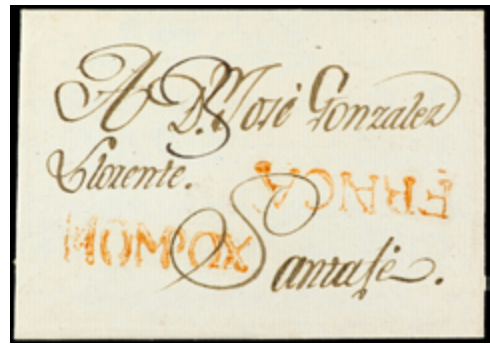 A D. José Gonzalez
Llorente.
FRANCA
MOMPOX
Santafé.